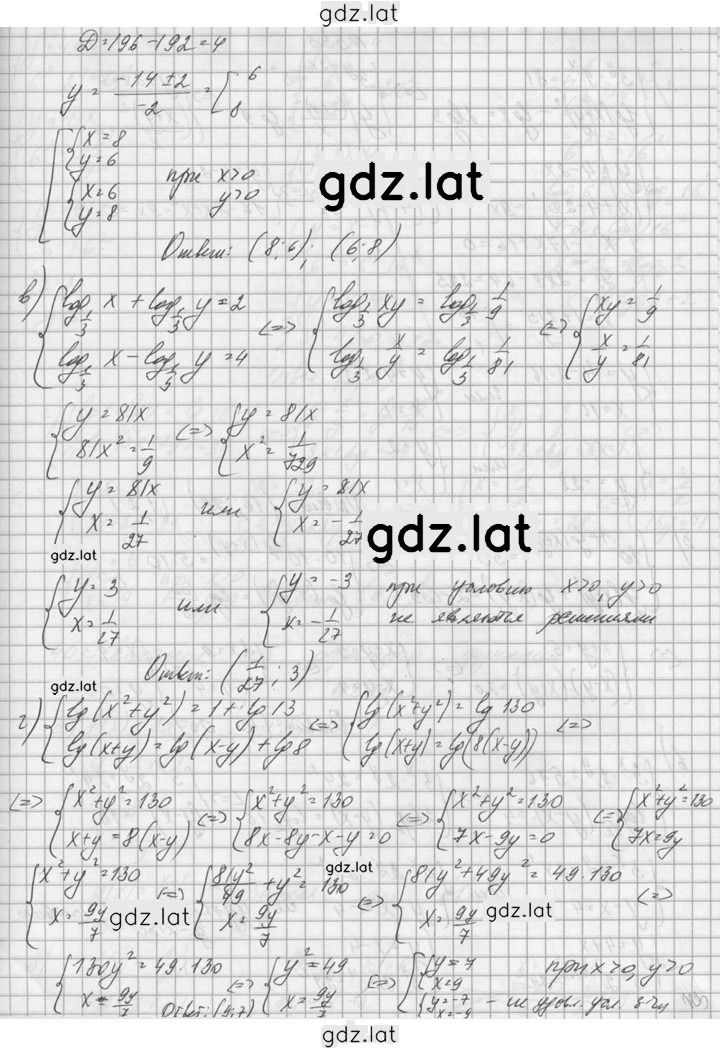 gdz.lat
Д=196-192=4
y = (-14±2)/(-2) = [ 6 8
[ { x=8 y=6 { x=6 y=8 при x>0 y>0
gdz.lat
Ответ: (8;6); (6;8)
в) { log_{1/3} x + log_{1/3} y = 2 log_{1/3} x - log_{1/3} y = 4 <=> { log_{1/3} xy = log_{1/3} 1/9 log_{1/3} x/y = log_{1/3} 1/81 <=> { xy = 1/9 x/y = 1/81
{ y = 81x 81x² = 1/9 <=> { y = 81x x² = 1/729
{ y = 81x x = 1/27 или { y = 81x x = -1/27
gdz.lat
gdz.lat
{ y = 3 x = 1/27 или { y = -3 x = -1/27 при условию x>0, y>0 не является решениями
Ответ: (1/27; 3)
gdz.lat
г) { lg(x²+y²) = 1 + lg 13 lg(x+y) = lg(x-y) + lg 8 <=> { lg(x²+y²) = lg 130 lg(x+y) = lg(8(x-y)) <=>
<=> { x²+y² = 130 x+y = 8(x-y) <=> { x²+y² = 130 8x-8y-x-y = 0 <=> { x²+y² = 130 7x-9y = 0 <=> { x²+y² = 130 7x = 9y
gdz.lat
{ x²+y² = 130 x = 9y/7 <=> { 81y²/49 + y² = 130 x = 9y/7 <=> { 81y² + 49y² = 49·130 x = 9y/7 <=>
gdz.lat
gdz.lat
{ 130y² = 49·130 x = 9y/7 <=> { y² = 49 x = 9y/7 <=> [ { y = 7 x = 9 { y = -7 x = -9 при x>0, y>0 - не удовл. усл. з-чи
Ответ: (9;7)
gdz.lat